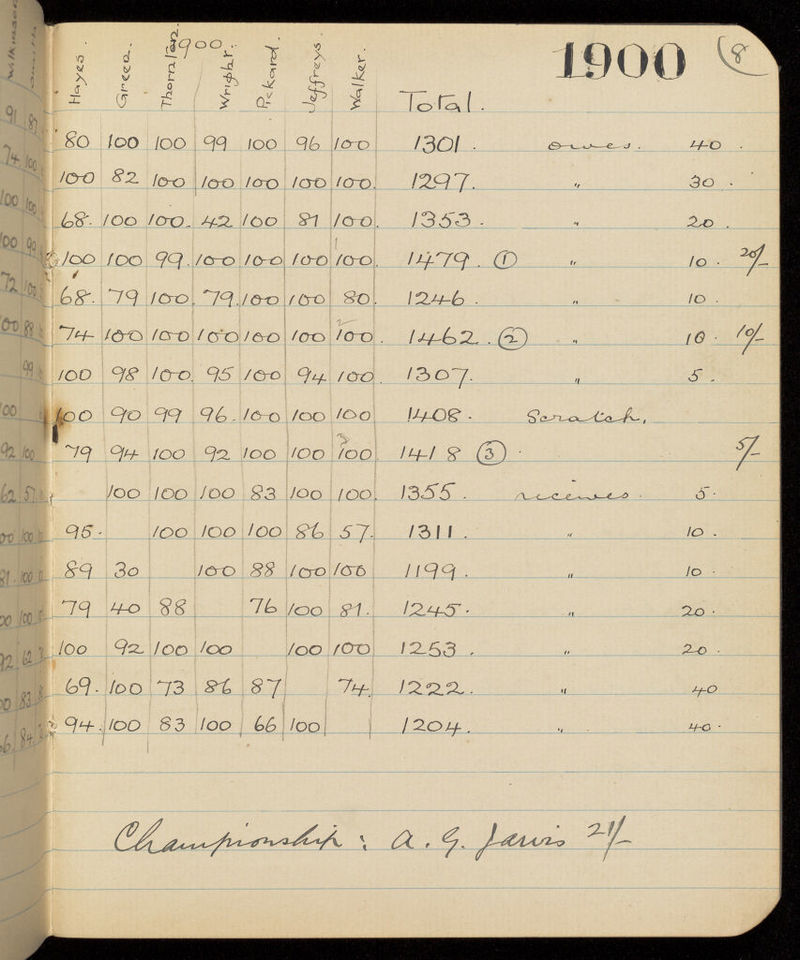 1900 8
900
Hayes. Green. Thornton. Wright. Pickard. Jeffreys. Walker. Total.
80 100 100 99 100 96 100 1301. owes. 40.
100 82 100 100 100 100 100. 1297. " 30.
68. 100 100. 42 100 81 100. 1353. " 20.
100 100 99. 100 100 100 100. 1479. ① " 10. 20/-
68. 79 100. 79. 100 100 80. 1246. " 10.
74 100 100 100 100 100 100. 1462. ② " 10. 10/-
100 98 100. 95 100 94 100. 1307. " 5.
100 90 99 96. 100 100 100 1408. Scratch.
79 94 100 92 100 100 100 1418 ③. 5/-
100 100 100 83 100 100. 1355. receives. 5.
95. 100 100 100 86 57. 1311. " 10.
89 30 100 88 100 100 1199. " 10.
79 40 88 76 100 81. 1245. " 20.
100 92 100 100 100 100 1253. " 20.
69. 100 73 86 87 74. 1222. " 40
94. 100 83 100 66 100 1204. " 40.
Championship: A. G. Jarvis 21/-